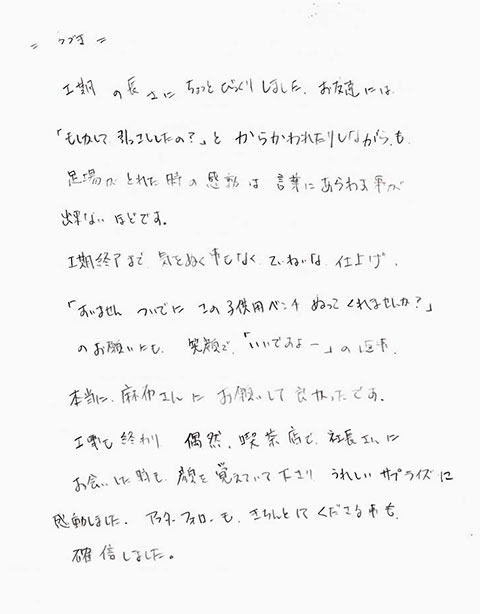 = つづき =
工期 の長さに ちょっと びっくりしました。お友達には
「もしかして 引っこししたの？」と からかわれたりしながらも、
足場が とれた時の感動は 言葉にあらわす事が
出来ない ほどです。
工期終了まで 気をぬく事もなく ていねいな 仕上げ。
「すいません ついでに この子供用ベンチ ぬってくれませんか？」
のお願いにも 笑顔で、「いいですよー」の返事。
本当に、麻布さんに お願いして 良かったです。
工事も終わり 偶然、喫茶店で、社長さんに
お会いした時も、顔を覚えていて下さり うれしい サプライズに
感動しました。アフターフォローも、きちんとしてくださる事も、
確信しました。